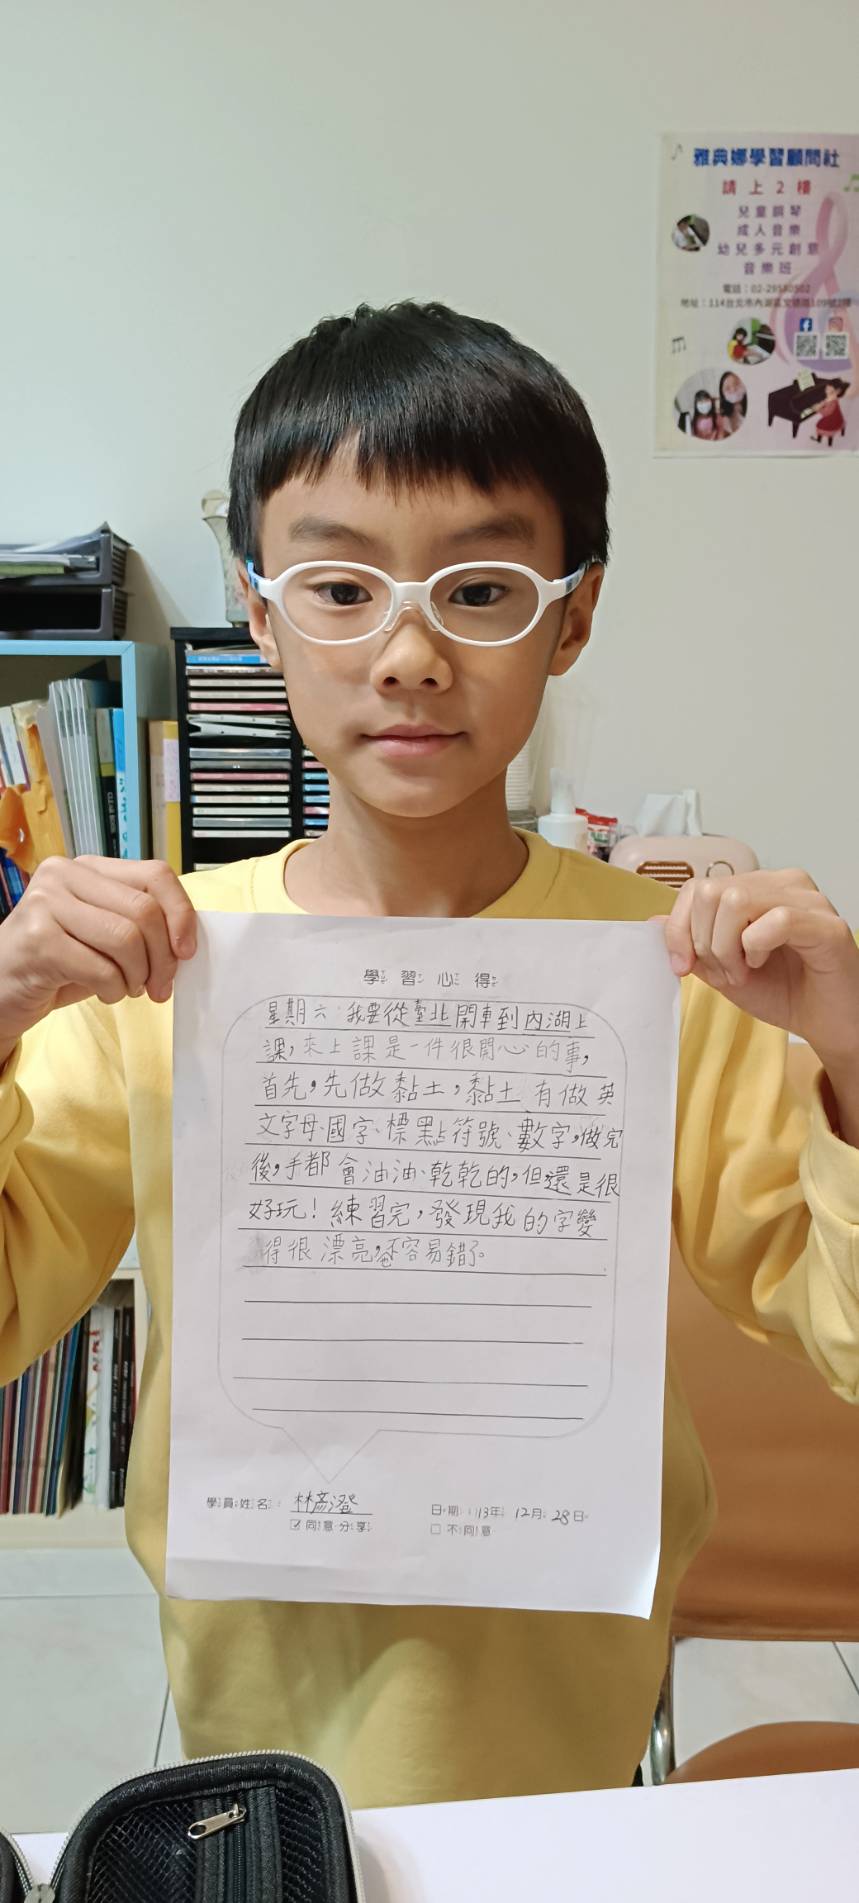 雅典娜學習顧問社
請上2樓
兒童鋼琴
成人音樂
幼兒多元創意
音樂班
學習心得
星期六,我要從臺北開車到內湖上
課,來上課是一件很開心的事,
首先,先做黏土,黏土有做英
文字母、國字、標點符號、數字,做完
後,手都會油油、乾乾的,但還是很
好玩!練習完,發現我的字變
得很漂亮,不容易錯了。
學員姓名:林彥澄
日期:113年12月28日
☑同意分享
☐不同意